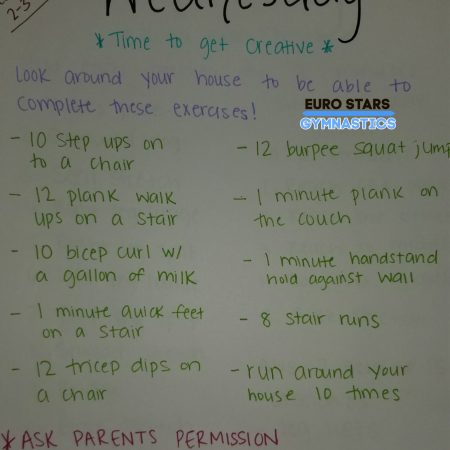 2-3
Wednesday
*Time to get creative*
Look around your house to be able to
complete these exercises!
EURO STARS
GYMNASTICS
- 10 step ups on
to a chair
- 12 plank walk
ups on a stair
- 10 bicep curl w/
a gallon of milk
- 1 minute quick feet
on a stair
- 12 tricep dips on
a chair
- 12 burpee squat jump
- 1 minute plank on
the couch
- 1 minute handstand
hold against wall
- 8 stair runs
- run around your
house 10 times
*ASK PARENTS PERMISSION